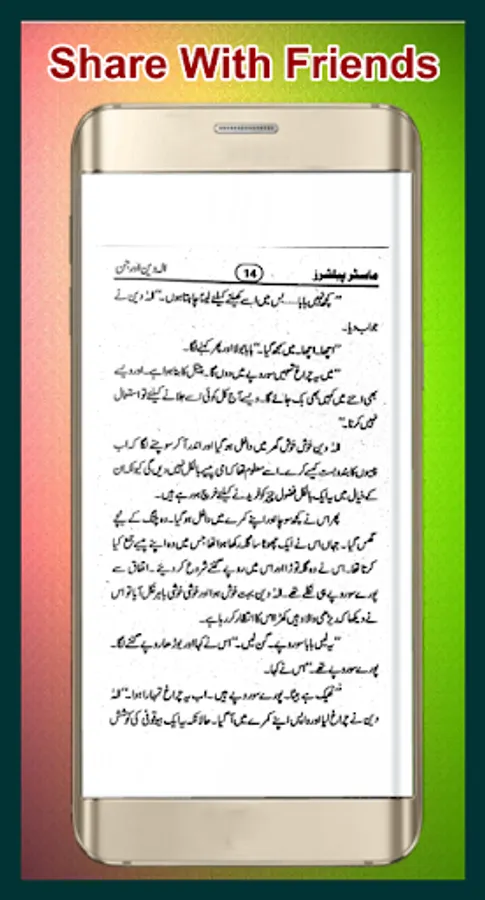 Share With Friends
ماسٹر پبلشرز 14 الہ دین اور جن
”کچھ نہیں بابا.....بس میں اسے کھیلنے کیلئے لینا چاہتا ہوں۔“ الہ دین نے
جواب دیا۔
”اچھا۔ اچھا۔ میں سمجھ گیا۔“ بابا بولا اور پھر کہنے لگا۔
”میں یہ چراغ تمہیں سو روپے میں دوں گا۔ پیتل کا بنا ہوا ہے۔ اور ویسے
بھی اتنے میں کہیں بھی بک جائے گا۔ ویسے آج کل کوئی اسے جلانے کیلئے تو استعمال
نہیں کرتا۔“
الہ دین خوش خوش گھر میں داخل ہو گیا اور اندر آ کر سوچنے لگا کہ اب
پیسوں کا بندوبست کیسے کرے۔ اسے معلوم تھا کہ امی پیسے بالکل نہیں دیں گی کیونکہ ان
کے خیال میں یہ ایک بالکل فضول چیز کو خریدنے کیلئے خرچ ہو رہے ہیں۔
پھر اس نے کچھ سوچا اور اپنے کمرے میں داخل ہو گیا۔ وہ پلنگ کے نیچے
گھس گیا۔ جہاں اس نے ایک چھوٹا سا گلہ رکھا ہوا تھا جس میں وہ اپنے پیسے جمع کیا
کرتا تھا۔ اس نے وہ گلہ توڑا اور اس میں روپے گننے شروع کر دیئے۔ اتفاق سے
پورے سو روپے ہی نکلے تھے۔ الہ دین بہت خوش ہوا اور خوشی خوشی باہر نکل آیا تو اس
نے دیکھا کہ ریڑھی والا وہیں کھڑا اس کا انتظار کر رہا ہے۔
”یہ لیں بابا سو روپے۔ گن لیں۔“ اس نے کہا اور بوڑھا روپے گننے لگا۔
پورے سو روپے تھے۔“ اس نے کہا۔
”ٹھیک ہے بیٹا۔ پورے سو روپے ہیں۔ اب یہ چراغ تمہارا ہوا۔“ الہ
دین نے چراغ لیا اور واپس اپنے کمرے میں آ گیا۔ حالانکہ یہ ایک بیوقوفی کی کوشش